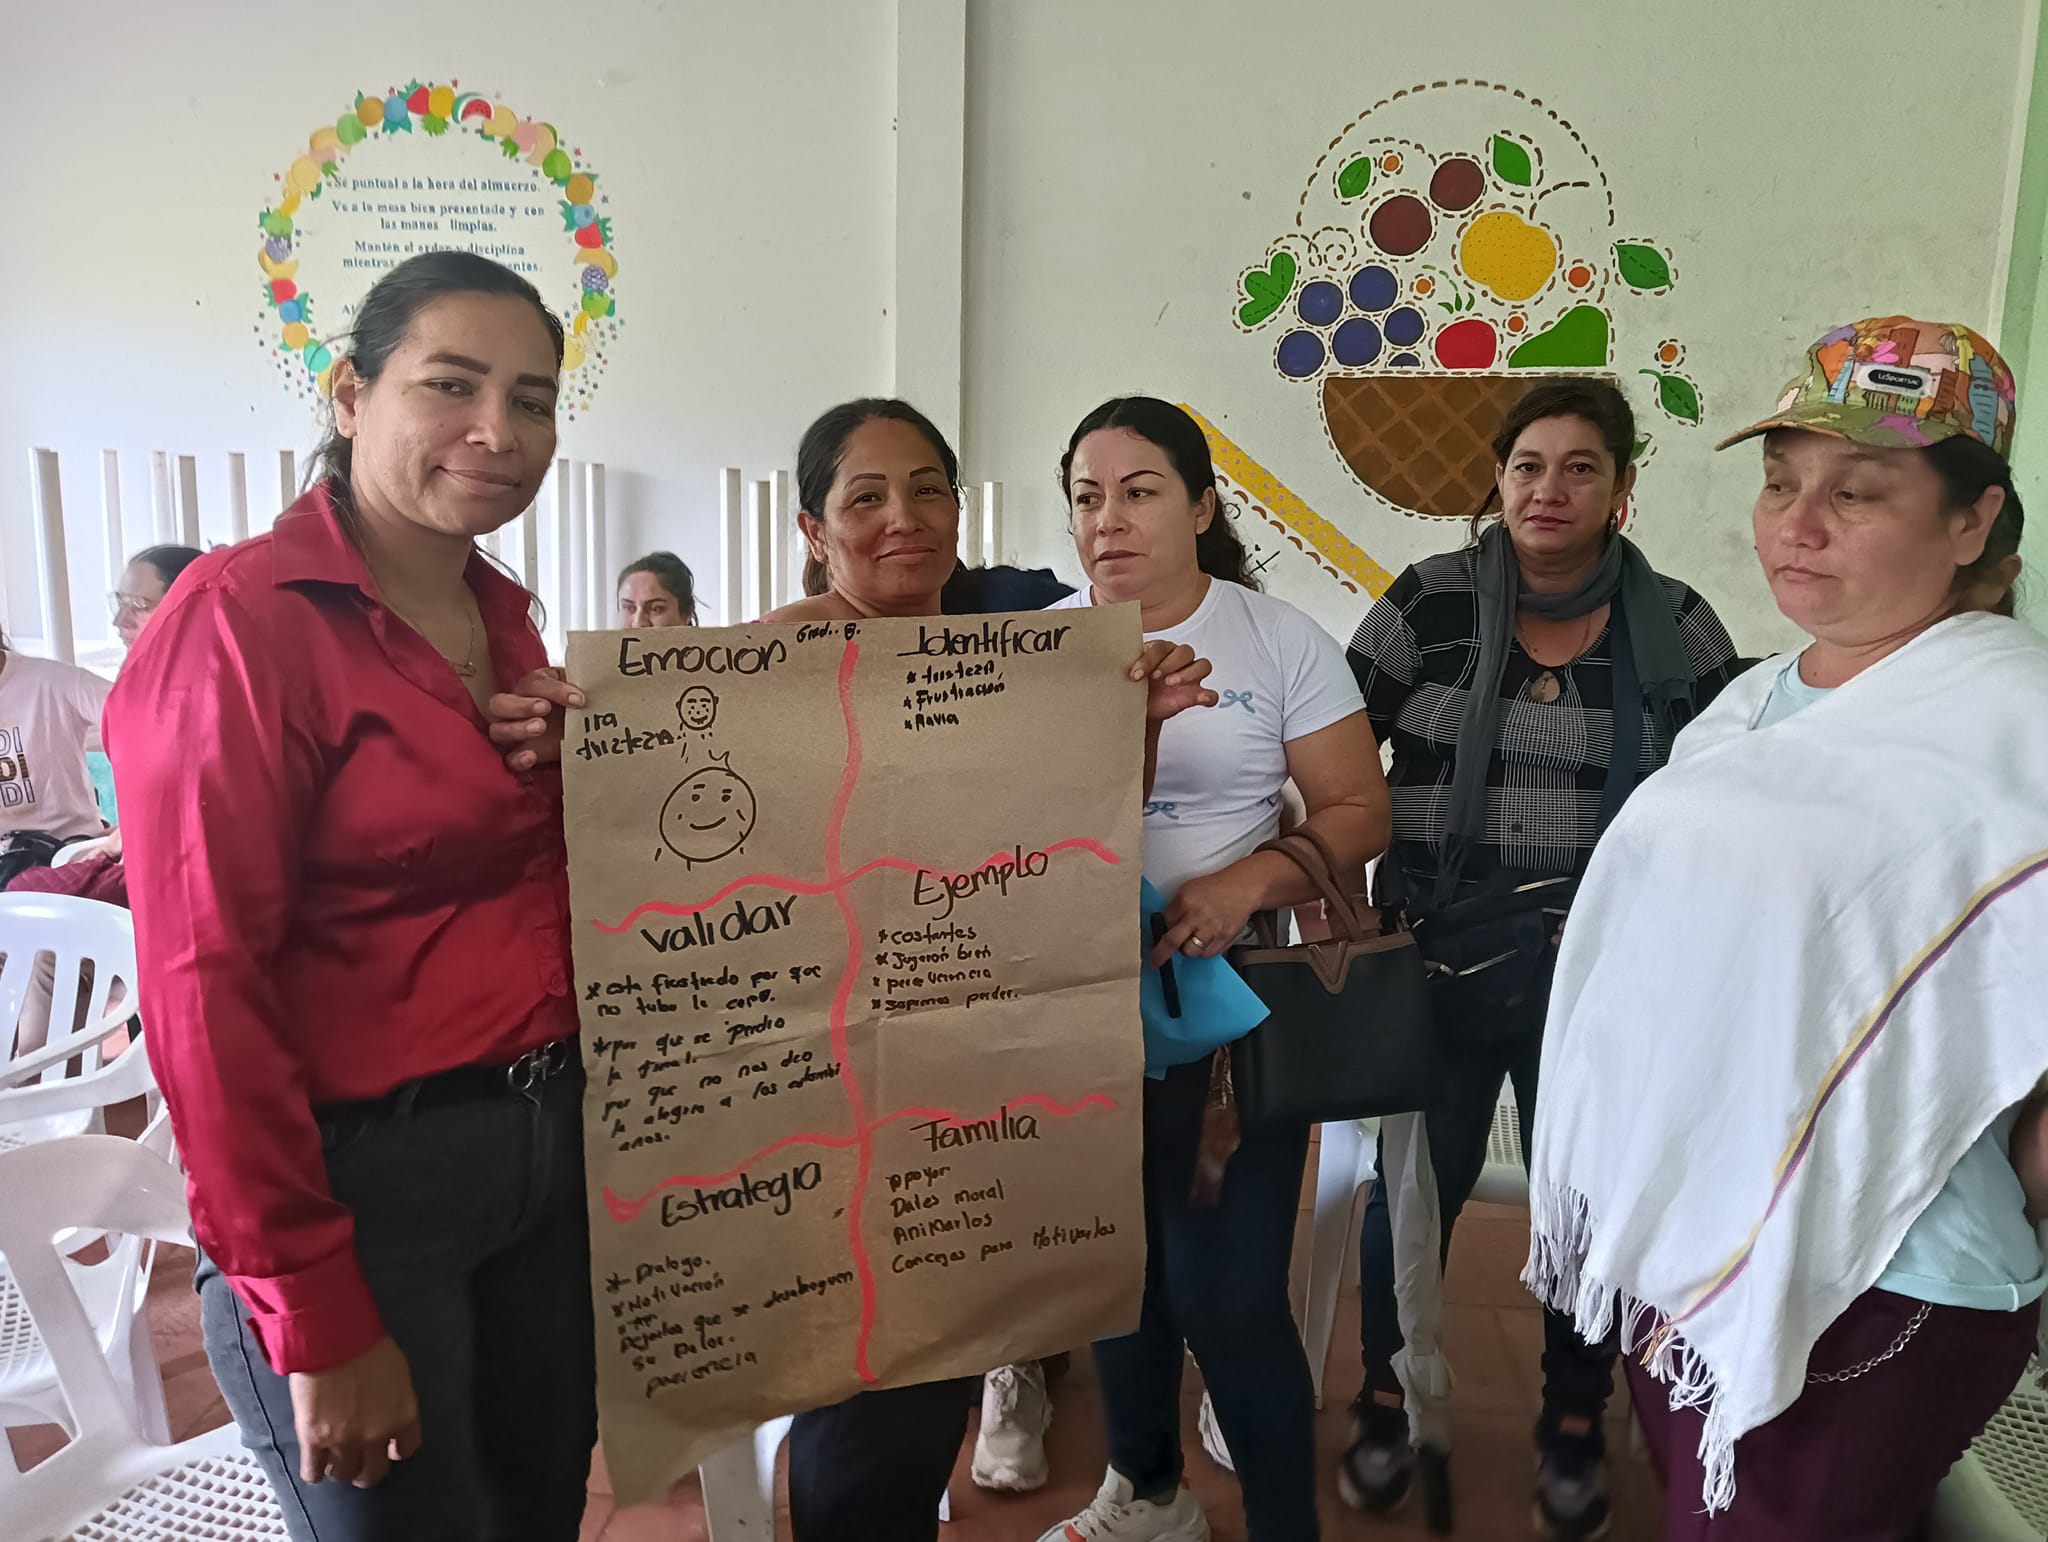 Se puntual a la hora del almuerzo.
Ve a la mesa bien presentado y con
las manos limpias.
Mantén el orden y disciplina
mientras
LeSportsac
DI
DI
DI
Emoción
Ira
tristeza.
Identificar
* tristeza
* Frustración
* Ravia
Validar
* esta frustrado por que
no tubo la copa.
* por que se perdio
la final.
por que no nos deo
la alegria a los colombi
anos.
Ejemplo
* costantes
* Jugaron bien
* perseverencia
* sapemos perder.
Estrategia
* Dialogo.
* Motivación
Dejarlos que se desahoguen
su dolor.
Familia
Apoyar.
Dales moral
Animarlos
Concejos para Motivarlos